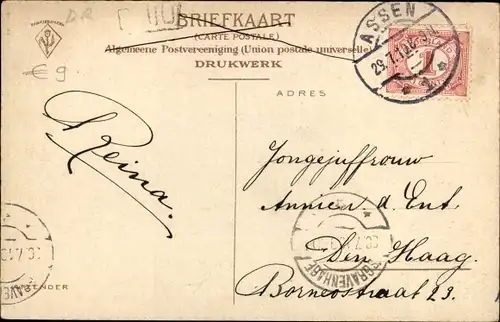 BRIEFKAART
(CARTE POSTALE)
Algemeene Postvereeniging (Union postale universelle)
DRUKWERK
€ 9
ASSEN
1
ADRES
Reina.
Jongejuffrouw
Annien v. d. Ent.
Den Haag.
Borneostraat 23.
'SGRAVENHAGE
AFZENDER